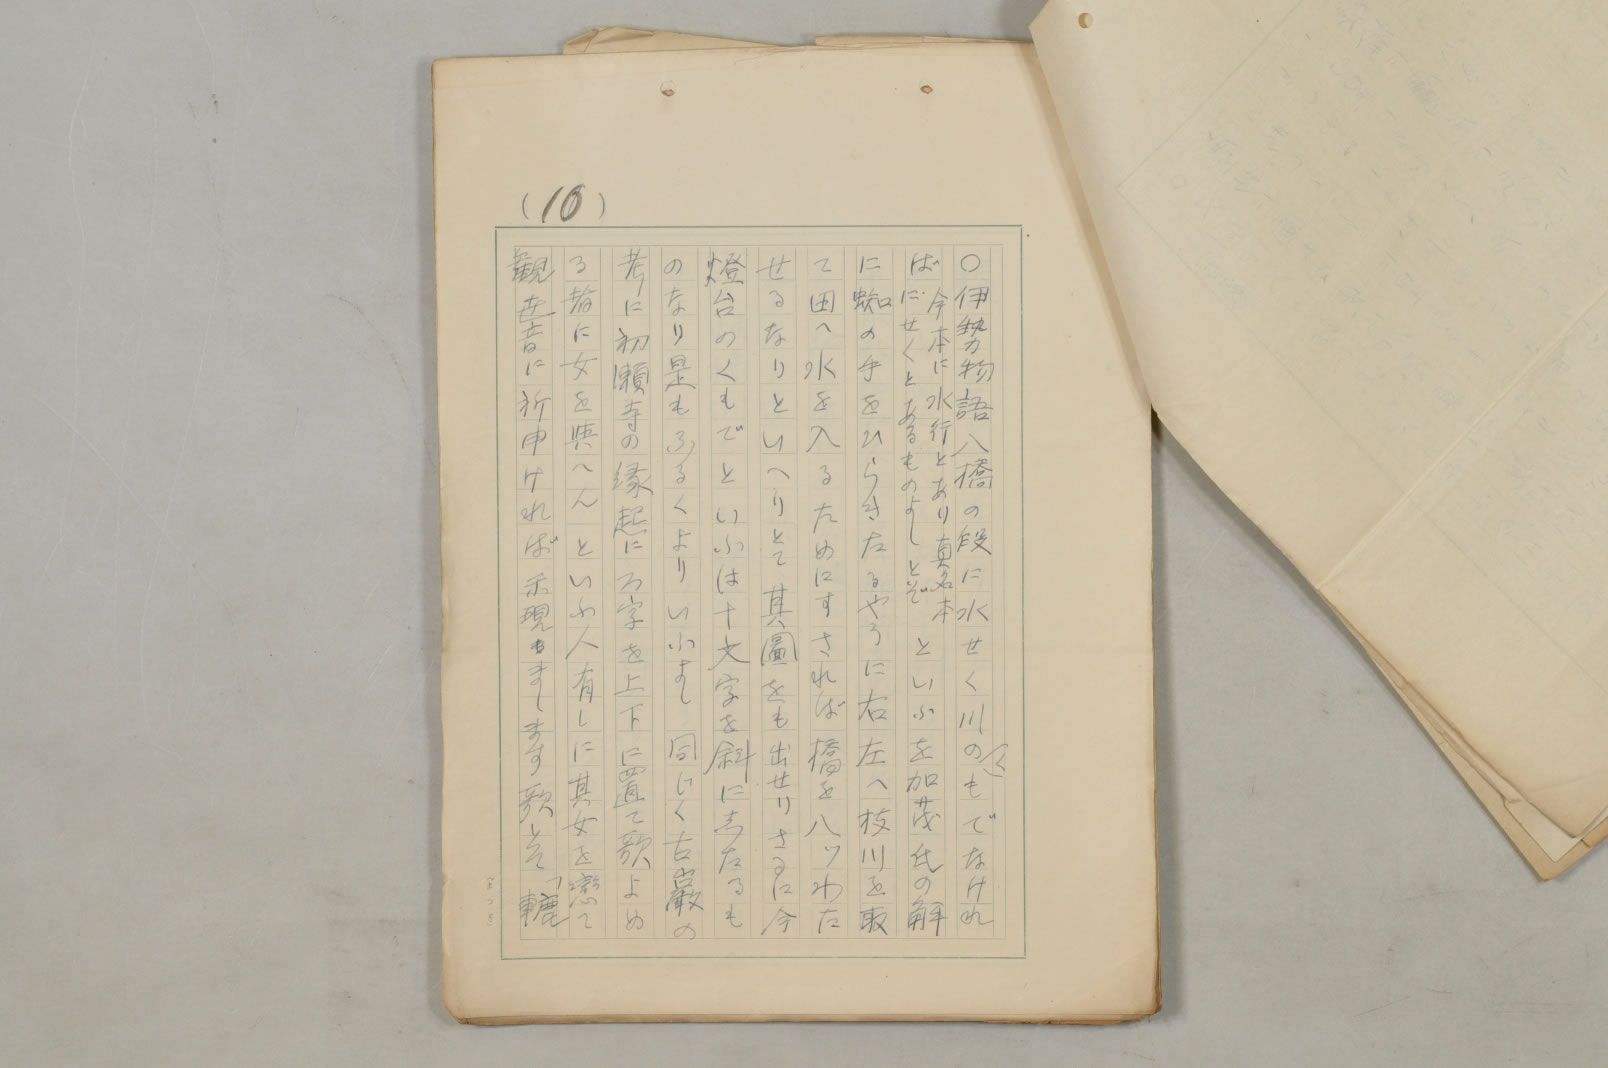 (16)
○伊勢物語八橋の段に水せく川のくもでなけれ
ば今本に水行とあり真名本にせくとあるものよしとぞといふを加茂氏の解
に蜘の手をひらきたるやうに右左へ枝川を取
て田へ水を入るためにすされば橋を八ツわた
せるなりといへりとて其圖をも出せりさるに今
燈台のくもでといふは十文字を斜にしたるも
のなり是もふるくよりいふよし同じく古巌の
考に初瀬寺の縁起にろ字を上下に置て歌よめ
る者に女を與へんといふ人有しに其女を戀て
観世音に祈申ければ示現ましします歌とて「轆